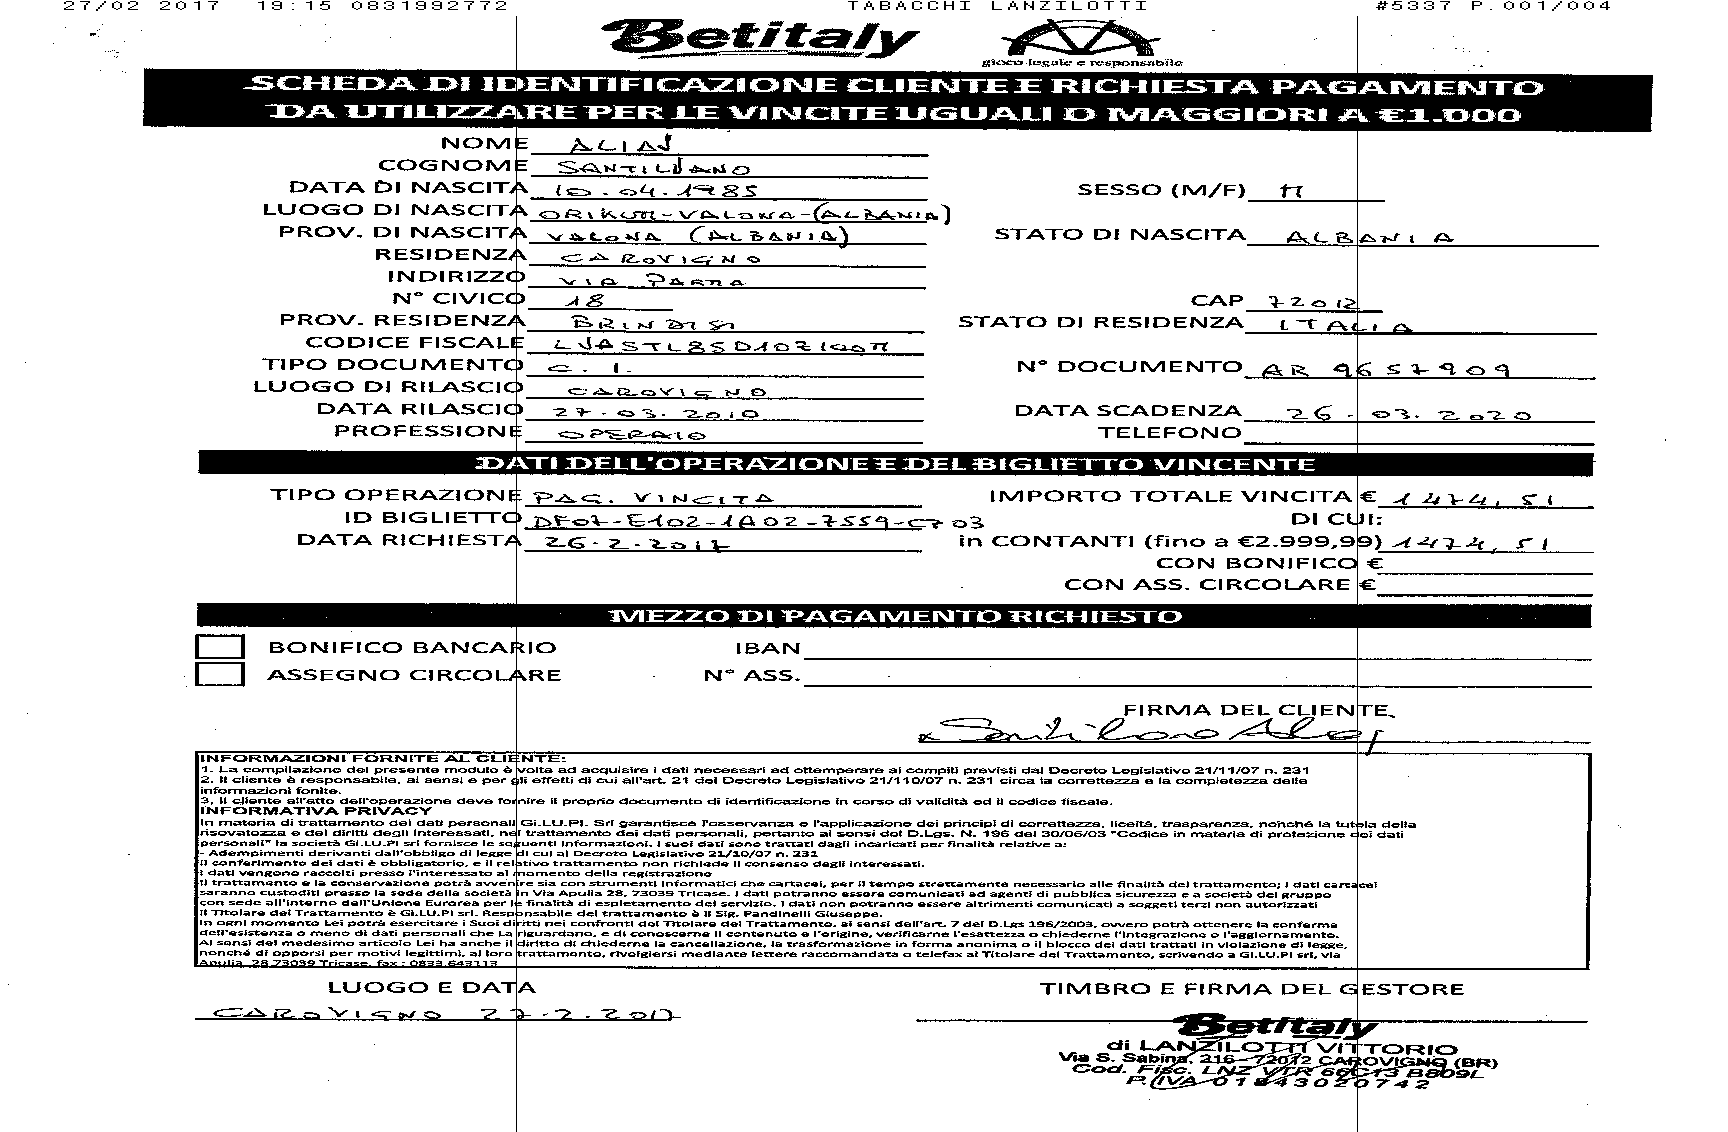 27/02 2017 19:15 0831992772 TABACCHI LANZILOTTI #5337 P.001/004
Betitaly
gioco legale e responsabile
SCHEDA DI IDENTIFICAZIONE CLIENTE E RICHIESTA PAGAMENTO
DA UTILIZZARE PER LE VINCITE UGUALI O MAGGIORI A €1.000
NOME ALIAJ
COGNOME SANTILJANO
DATA DI NASCITA 10.04.1985 SESSO (M/F) M
LUOGO DI NASCITA ORIKUM-VALONA-(ALBANIA)
PROV. DI NASCITA VALONA (ALBANIA) STATO DI NASCITA ALBANIA
RESIDENZA CAROVIGNO
INDIRIZZO VIA PARMA
N° CIVICO 18 CAP 72012
PROV. RESIDENZA BRINDISI STATO DI RESIDENZA ITALIA
CODICE FISCALE LJASTL85D10Z100M
TIPO DOCUMENTO C. I. N° DOCUMENTO AR 9657909
LUOGO DI RILASCIO CAROVIGNO
DATA RILASCIO 27.03.2010 DATA SCADENZA 26.03.2020
PROFESSIONE OPERAIO TELEFONO
DATI DELL'OPERAZIONE E DEL BIGLIETTO VINCENTE
TIPO OPERAZIONE PAG. VINCITA IMPORTO TOTALE VINCITA € 1474,51
ID BIGLIETTO DF07-E102-1A02-7559-C703 DI CUI:
DATA RICHIESTA 26.2.2017 in CONTANTI (fino a €2.999,99) 1474,51
CON BONIFICO €
CON ASS. CIRCOLARE €
MEZZO DI PAGAMENTO RICHIESTO
BONIFICO BANCARIO IBAN
ASSEGNO CIRCOLARE N° ASS.
FIRMA DEL CLIENTE
x Santiljano Aliaj
INFORMAZIONI FORNITE AL CLIENTE:
1. La compilazione del presente modulo è volta ad acquisire i dati necessari ad ottemperare ai compiti previsti dal Decreto Legislativo 21/11/07 n. 231
2. Il cliente è responsabile, ai sensi e per gli effetti di cui all'art. 21 del Decreto Legislativo 21/110/07 n. 231 circa la correttezza e la completezza delle
informazioni fonite.
3. Il cliente all'atto dell'operazione deve fornire il proprio documento di identificazione in corso di validità ed il codice fiscale.
INFORMATIVA PRIVACY
In materia di trattamento dei dati personali GI.LU.PI. Srl garantisce l'osservanza e l'applicazione dei principi di correttezza, liceità, trasparenza, nonché la tutela della
risovatozza e dei diritti degli interessati, nel trattamento dei dati personali, pertanto ai sensi del D.Lgs. N. 196 del 30/06/03 "Codice in materia di protezione dei dati
personali" la società GI.LU.PI srl fornisce le seguenti informazioni. I suoi dati sono trattati dagli incaricati per finalità relative a:
- Adempimenti derivanti dall'obbligo di legge di cui al Decreto Legislativo 21/10/07 n. 231
Il conferimento dei dati è obbligatorio, e il relativo trattamento non richiede il consenso degli interessati.
I dati vengono raccolti presso l'interessato al momento della registrazione
Il trattamento e la conservazione potrà avvenire sia con strumenti informatici che cartacei, per il tempo strettamente necessario alle finalità del trattamento; i dati cartacei
saranno custoditi presso la sede della società in Via Apulia 28, 73039 Tricase. I dati potranno essere comunicati ad agenti di pubblica sicurezza e a società del gruppo
con sede all'interno dell'Unione Eurorea per le finalità di espletamento del servizio. I dati non potranno essere altrimenti comunicati a soggeti terzi non autorizzati
Il Titolare del Trattamento è GI.LU.PI srl. Responsabile del trattamento è il Sig. Pandinelli Giuseppe.
In ogni momento Lei potrà esercitare i Suoi diritti nei confronti del Titolare del Trattamento, ai sensi dell'art. 7 del D.Lgs 196/2003, ovvero potrà ottenere la conferma
dell'esistenza o meno di dati personali che La riguardano, e di conoscerne il contenuto e l'origine, verificarne l'esattezza o chiederne l'integrazione o l'aggiornamento.
Ai sensi del medesimo articolo Lei ha anche il diritto di chiederne la cancellazione, la trasformazione in forma anonima o il blocco dei dati trattati in violazione di legge,
nonché di opporsi per motivi legittimi, al loro trattamento, rivolgiersi mediante lettere raccomandata o telefax al Titolare del Trattamento, scrivendo a GI.LU.PI srl, via
Apulia, 28 73039 Tricase, fax : 0833.643113
LUOGO E DATA TIMBRO E FIRMA DEL GESTORE
CAROVIGNO 27.2.2017
Betitaly
di LANZILOTTI VITTORIO
Via S. Sabina, 216 - 72012 CAROVIGNO (BR)
Cod. Fisc. LNZ VTR 66C13 B809L
P. IVA 01843020742